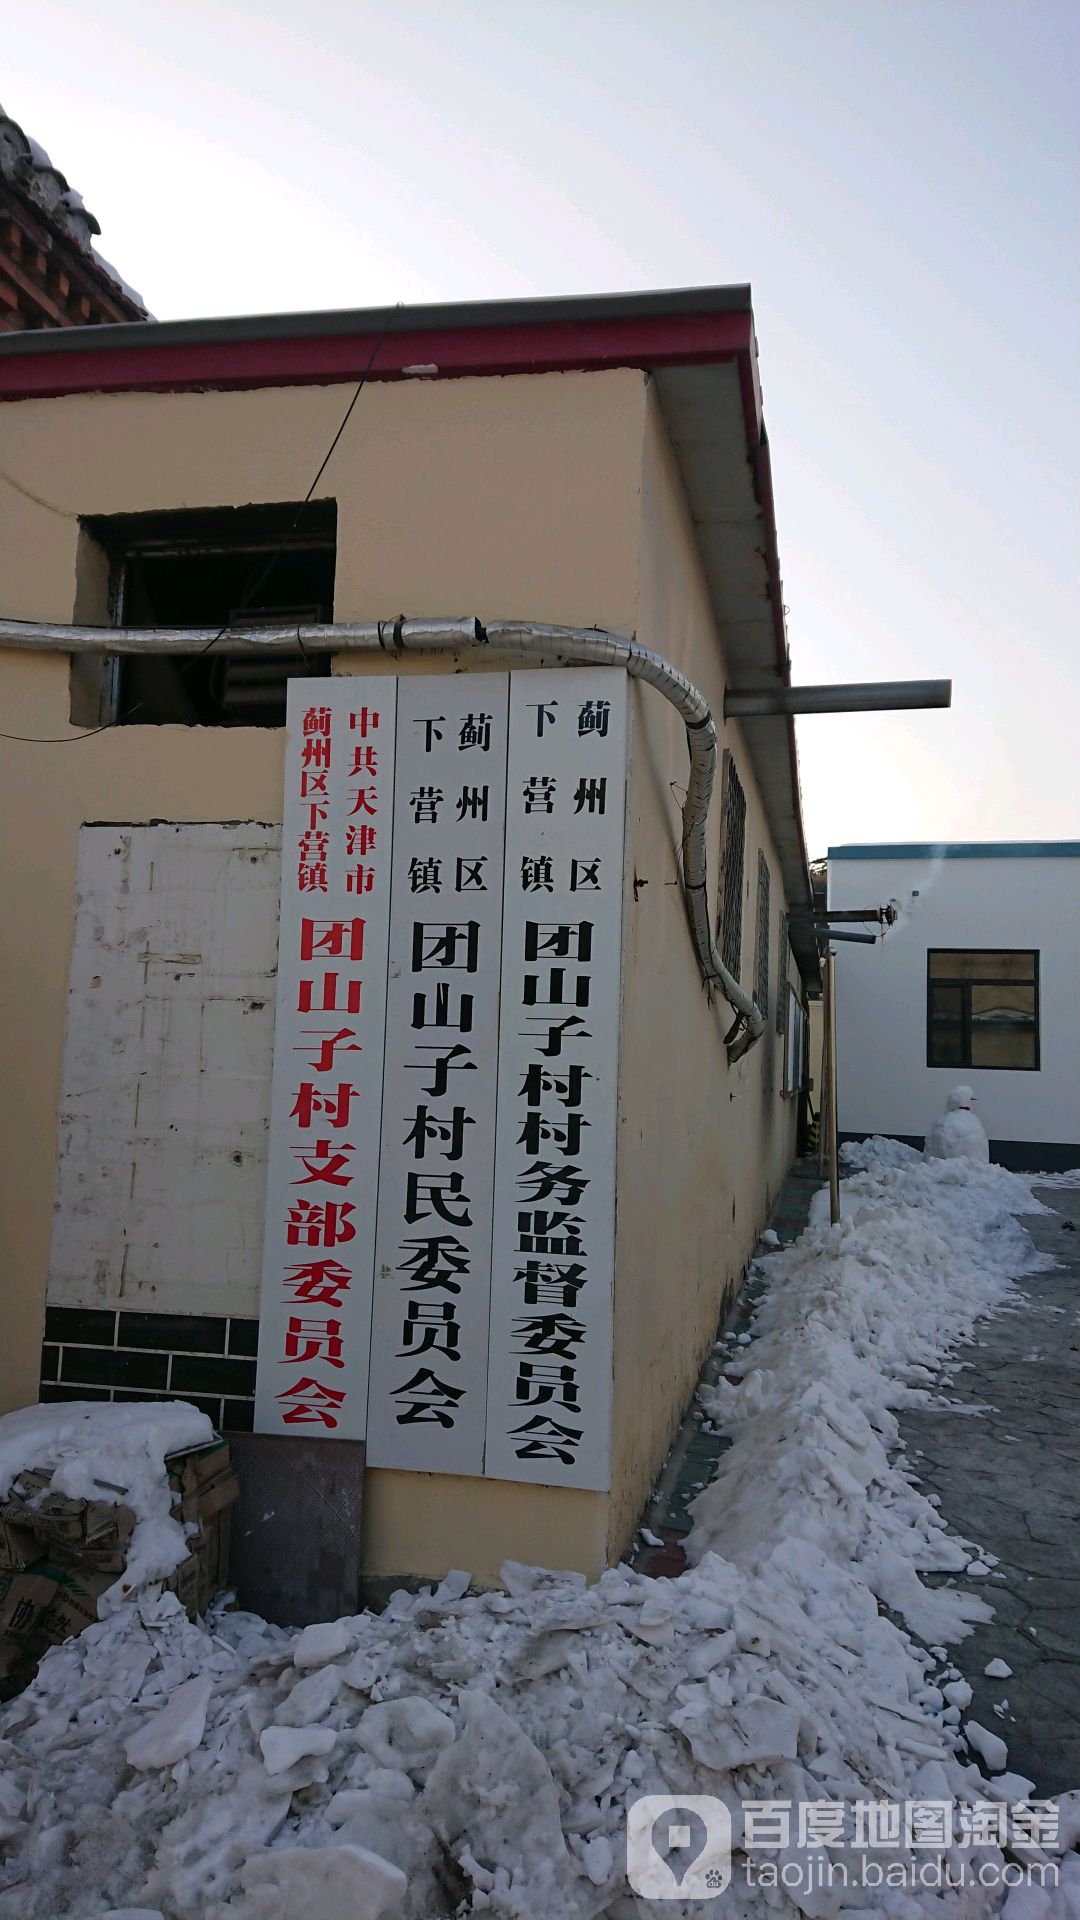 中共天津市
蓟州区下营镇
团山子村支部委员会
蓟州区
下营镇
团山子村民委员会
蓟州区
下营镇
团山子村村务监督委员会
百度地图淘金
taojin.baidu.com